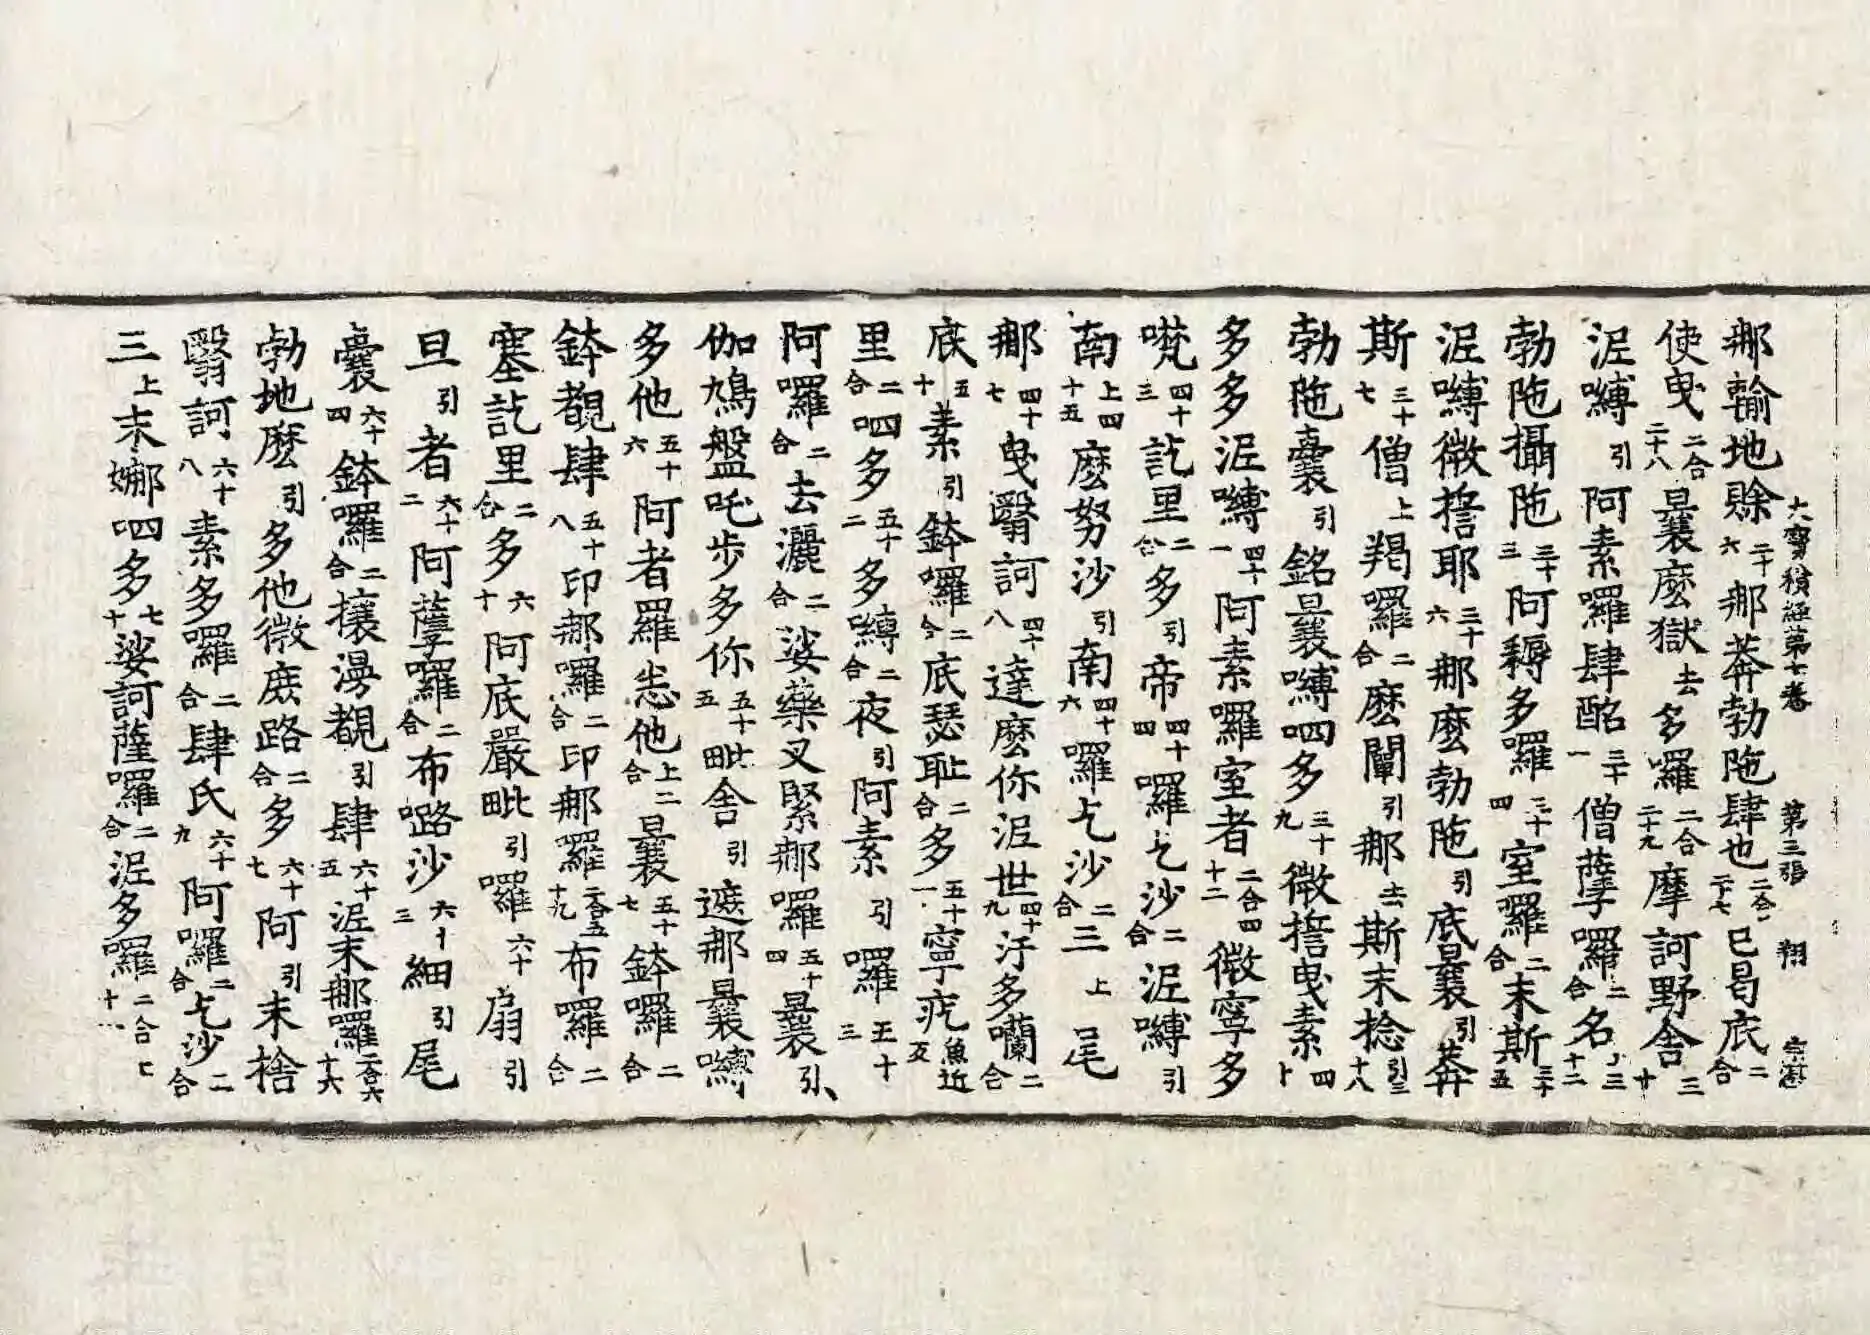 大寶積經第七卷 第三張 翔
那輸地賖二十六那莽勃陁肆也二合二十七已曷底二合
使曳二合二十八曩麽獄去多羅二合二十九摩訶野舎三十
泥嚩引阿素囉肆酩三十一僧孽囉二合名三十二
勃陁攝陁三十三阿耨多囉三十四室囉二合末斯三十五
泥嚩微擔耶三十六那麽勃陁引底曩引莽
斯三十七僧上羯囉二合麽闡引那去斯末捻引三十八
勃陁囊引銘曩嚩呬多三十九微擔曳素四十
多多泥嚩四十一阿素囉室者二合四十二微寧多
嘊四十三訖里二合多引帝四十四囉乞沙二合泥嚩引
南上四十五麽努沙引南四十六囉乞沙二合三上尾
那四十七曳翳訶四十八達麽你泥世四十九汙多囒二合
底五十素引鉢囉二合底瑟耻二合多五十一寧疙魚近反
里二合呬多五十二多嚩二合夜引阿素引囉五十三
阿囉二合去灑二合娑藥叉緊那囉五十四曩引
伽鳩盤吒步多你五十五毗舎引遮那曩嚩
多他五十六阿者羅恙他上二合曩五十七鉢囉二合
鉢覩肆五十八印那囉二合印那羅二合五十九布羅二合
塞訖里二合多六十阿底嚴毗引囉六十一扇引
旦引者六十二阿孽囉二合布嚕沙六十三細引尾
曩六十四鉢囉二合攘湯覩引肆六十五泥末那羅二合六十六
勃地麽引多他微庶路二合多六十七阿引末捨
翳訶六十八素多囉二合肆氏六十九阿囉二合乞沙二合
三上末娜呬多七十娑訶薩囉二合泥多囉二合七十一